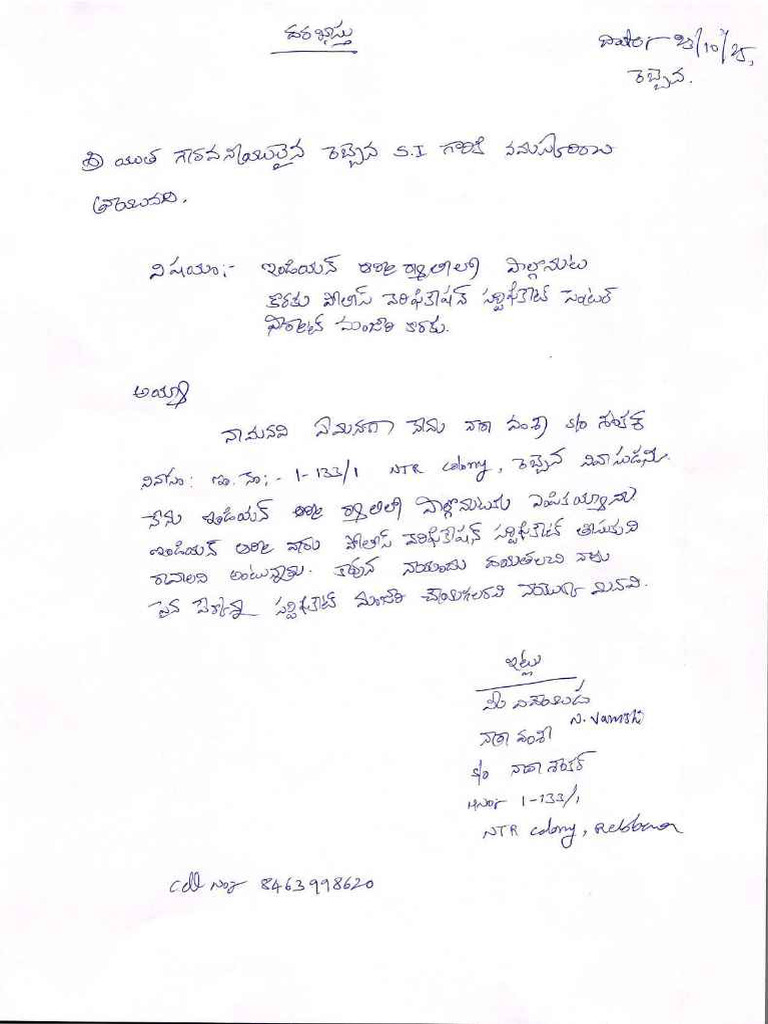 దరఖాస్తు
తేది:- 28/10/25,
రెబ్బెన.
శ్రీ యుత గౌరవనీయులైన రెబ్బెన S.I గారికి నమస్కరించి
వ్రాయునది.
విషయం:- ఇండియన్ ఆర్మీ ర్యాలీలో పాల్గొనుట
కొరకు పోలీస్ వెరిఫికేషన్ సర్టిఫికెట్
మంజూరి కొరకు.
అయ్యా
నా మనవి ఏమనగా నేను నారా వంశీ S/o శంకర్
నివాసం: ఇం. నం:- 1-133/1 NTR colony, రెబ్బెన నివాసుడను.
నేను ఇండియన్ ఆర్మీ ర్యాలీలో పాల్గొనుటకు
ఇండియన్ ఆర్మీ వారు పోలీస్ వెరిఫికేషన్ సర్టిఫికెట్ తీసుకుని
రావాలని అంటున్నారు. కావున నాయందు దయతలచి నాకు
పైన పేర్కొన్న సర్టిఫికెట్ మంజూరి చేయగలరని నా యొక్క మనవి.
ఇట్లు
మీ విధేయుడు
N. Vamshi
నారా వంశీ
S/o నారా శంకర్
H.No:- 1-133/1
NTR colony, Rebbena
Cell No:- 8463998620